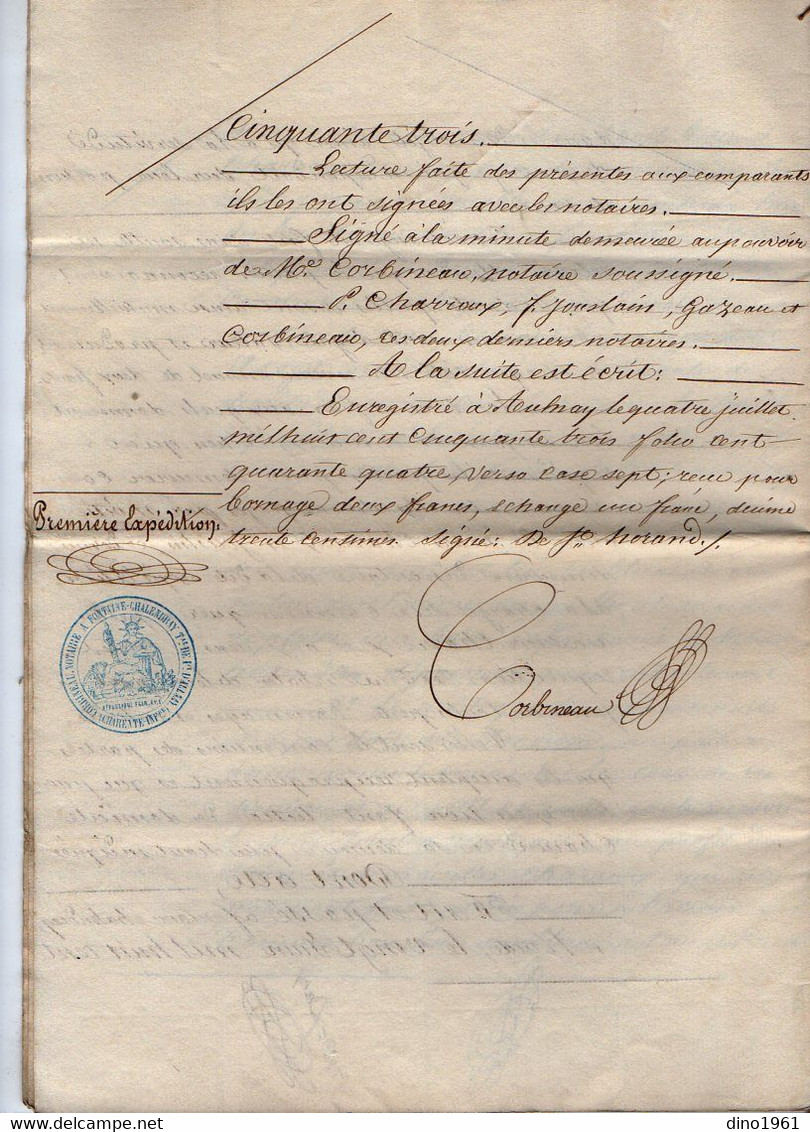 Cinquante trois.
Lecture faite des présentes aux comparants
ils les ont signées avec les notaires.
Signé à la minute demeurée au pouvoir
de Me. Corbineau, notaire soussigné.
P. Charroux, f. Jousdain, Gazeau et
Corbineau, ces deux derniers notaires.
A la suite est écrit:
Enregistré à Aulnay le quatre juillet
mil huit cent cinquante trois folio cent
quarante quatre verso case sept; reçu pour
bornage deux francs, échange un franc, décime
trente centimes. Signé: De Morand./.
Première Expédition:
Corbineau
CORBINEAU, NOTAIRE A FONTAINE-CHALENDRAY
REPUBLIQUE FRANÇAISE
dino1961